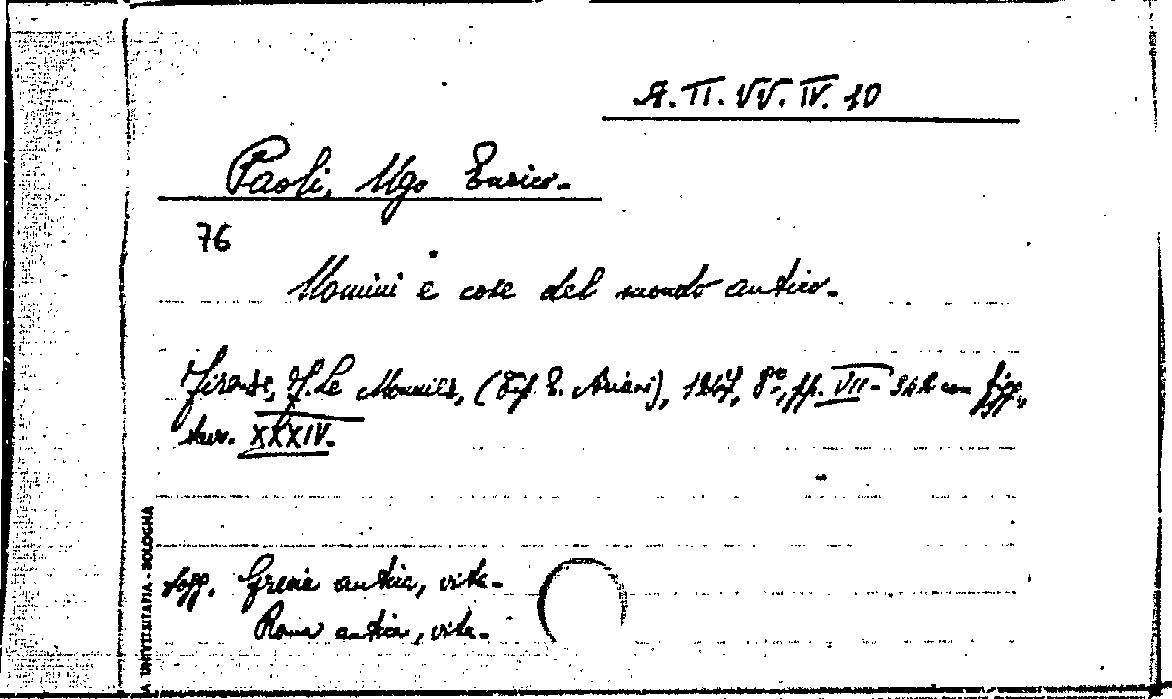 A.II.VV.IV.10
Paoli, Ugo Enrico.
76
Uomini e cose del mondo antico.
Firenze, F. Le Monnier, (Tip. E. Ariani), 1947, 8°, pp. VII- 342 con figg.,
tav. XXXIV.
Sogg. Grecia antica, vita.
Roma antica, vita.
BOLOGNA